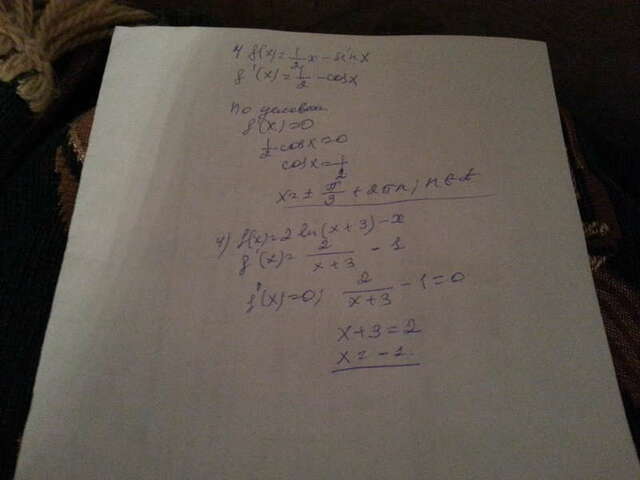 4 f(x)=1/2x-sinx
f'(x)=1/2-cosx
По условию
f'(x)=0
1/2-cosx=0
cosx=1/2
x=±π/3+2πn; n∈Z
4) f(x)=2ln(x+3)-x
f'(x)=2/(x+3)-1
f'(x)=0; 2/(x+3)-1=0
x+3=2
x=-1.